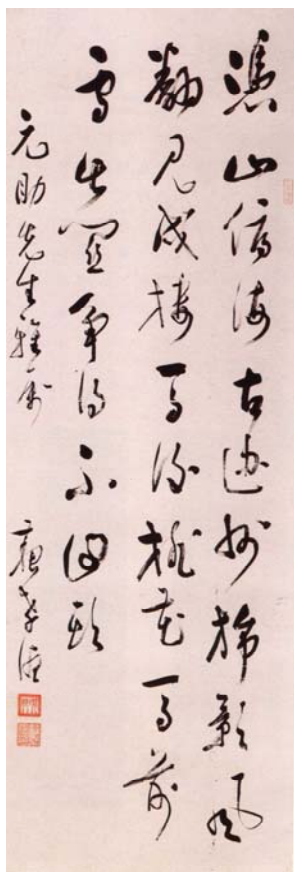 憑山俯海古邊州旆影風
翻見戍樓馬後桃花馬前
雪出關爭得不回頭
元助先生雅屬 蘇孝德